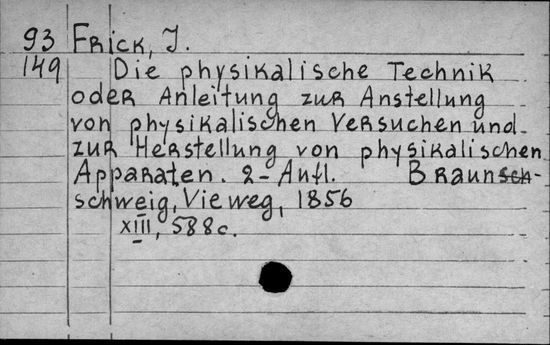 93 Frick, J.
149 Die physikalische Technik
oder Anleitung zur Anstellung
von physikalischen Versuchen und
zur Herstellung von physikalischen
Apparaten. 2-Aufl. Braun-
schweig, Vieweg, 1856
XIII, 588c.